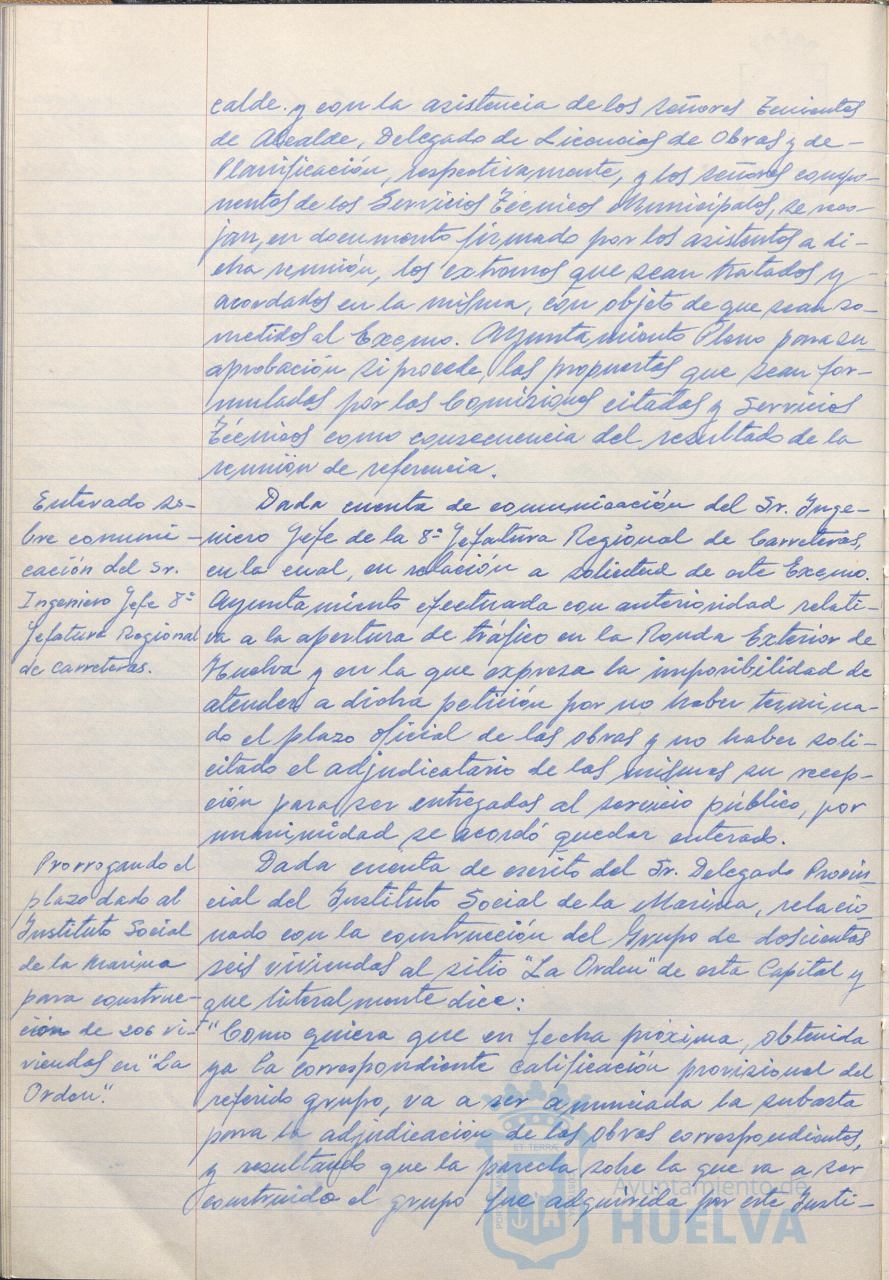 calde. y con la asistencia de los señores Tenientes
de Alcalde, Delegado de Licencias de Obras y de -
Planificación, respectivamente, y los señores compo-
nentes de los Servicios Técnicos Municipales, se reco-
jan, en documento firmado por los asistentes a di-
cha reunión, los extremos que sean tratados y
acordados en la misma, con objeto de que sean so-
metidos al Excmo. Ayuntamiento Pleno para su
aprobación si procede, las propuestas que sean for-
muladas por las Comisiones citadas y Servicios
Técnicos como consecuencia del resultado de la
reunión de referencia.
Enterado so-
bre comuni-
cación del Sr.
Ingeniero Jefe 8ª
Jefatura Regional
de Carreteras.
Dada cuenta de comunicación del Sr. Inge-
niero Jefe de la 8ª Jefatura Regional de Carreteras,
en la cual, en relación a solicitud de este Excmo.
Ayuntamiento efectuada con anterioridad relati-
va a la apertura de tráfico en la Ronda Exterior de
Huelva y en la que expresa la imposibilidad de
atender a dicha petición por no haber termina-
do el plazo oficial de las obras y no haber soli-
citado el adjudicatario de las mismas su recep-
ción para ser entregadas al servicio público, por
unanimidad se acordó quedar enterado.
Prorrogando el
plazo dado al
Instituto Social
de la Marina
para construc-
ción de 206 vi-
viendas en "La
Orden".
Dada cuenta de escrito del Sr. Delegado Provin-
cial del Instituto Social de la Marina, relacio
nado con la construcción del Grupo de doscientas
seis viviendas al sitio "La Orden" de esta Capital y
que literalmente dice:
"Como quiera que en fecha próxima, obtenida
ya la correspondiente calificación provisional del
referido grupo, va a ser anunciada la subasta
para la adjudicación de las obras correspondientes,
y resultando que la parcela sobre la que va a ser
construido el grupo fue adquirida por este Insti-
Ayuntamiento de
HUELVA